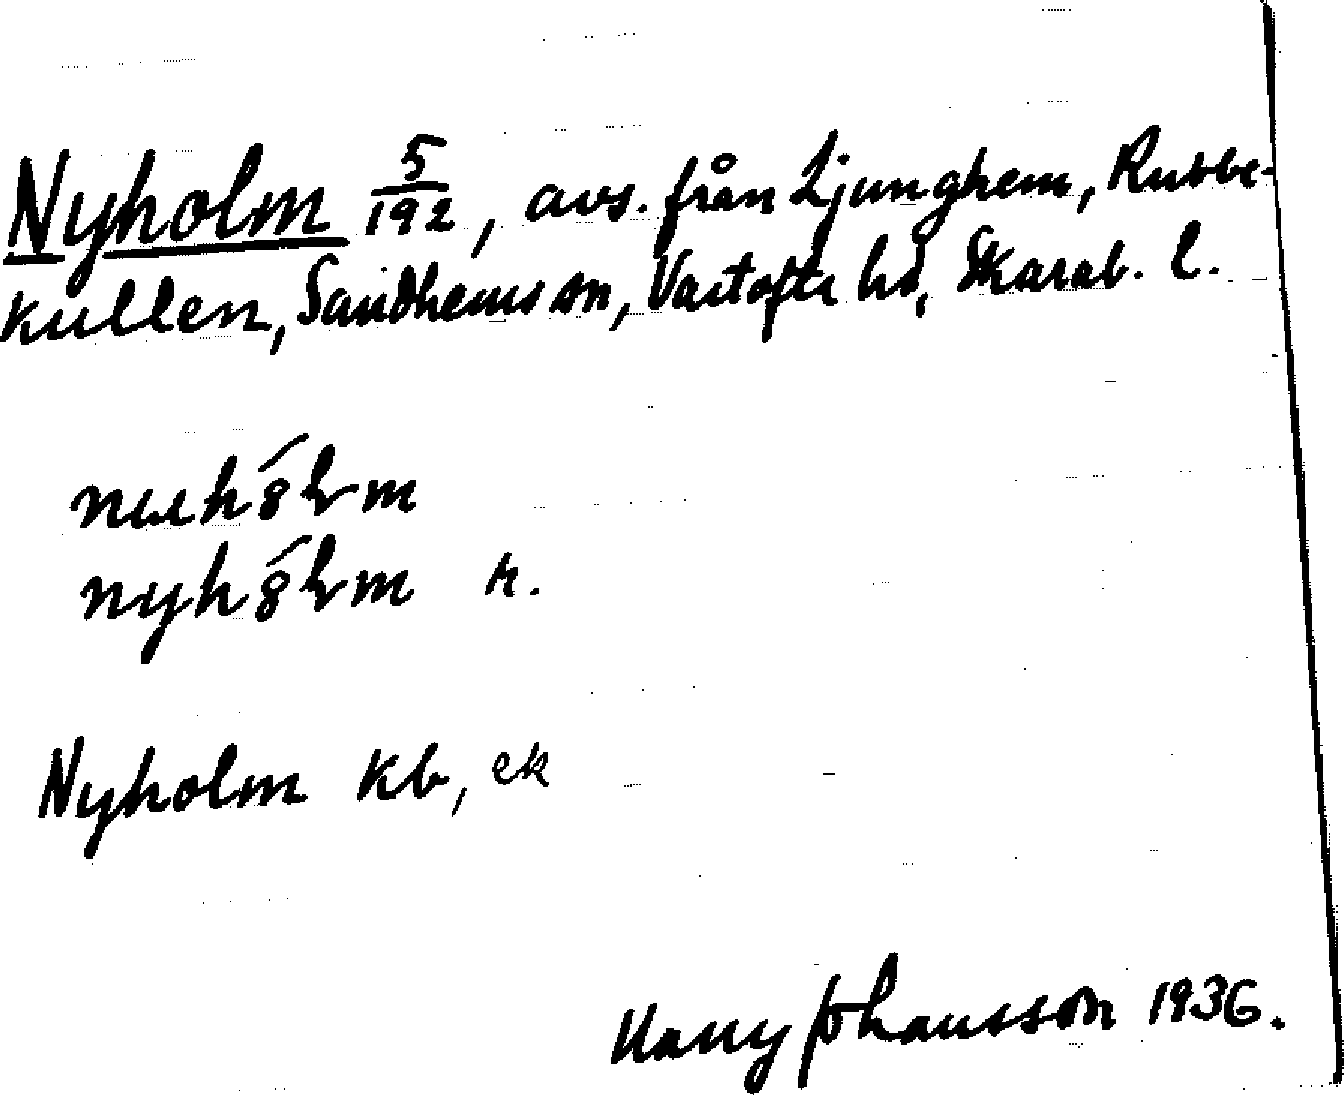 Nyholm 5/192, avs. från Ljunghem, Rubbe-
kullen, Sandhems sn, Vartofta hd, Skarab. l.
nyhȯ́lm r.
Nyholm kb, ek
Harry Johansson 1936.